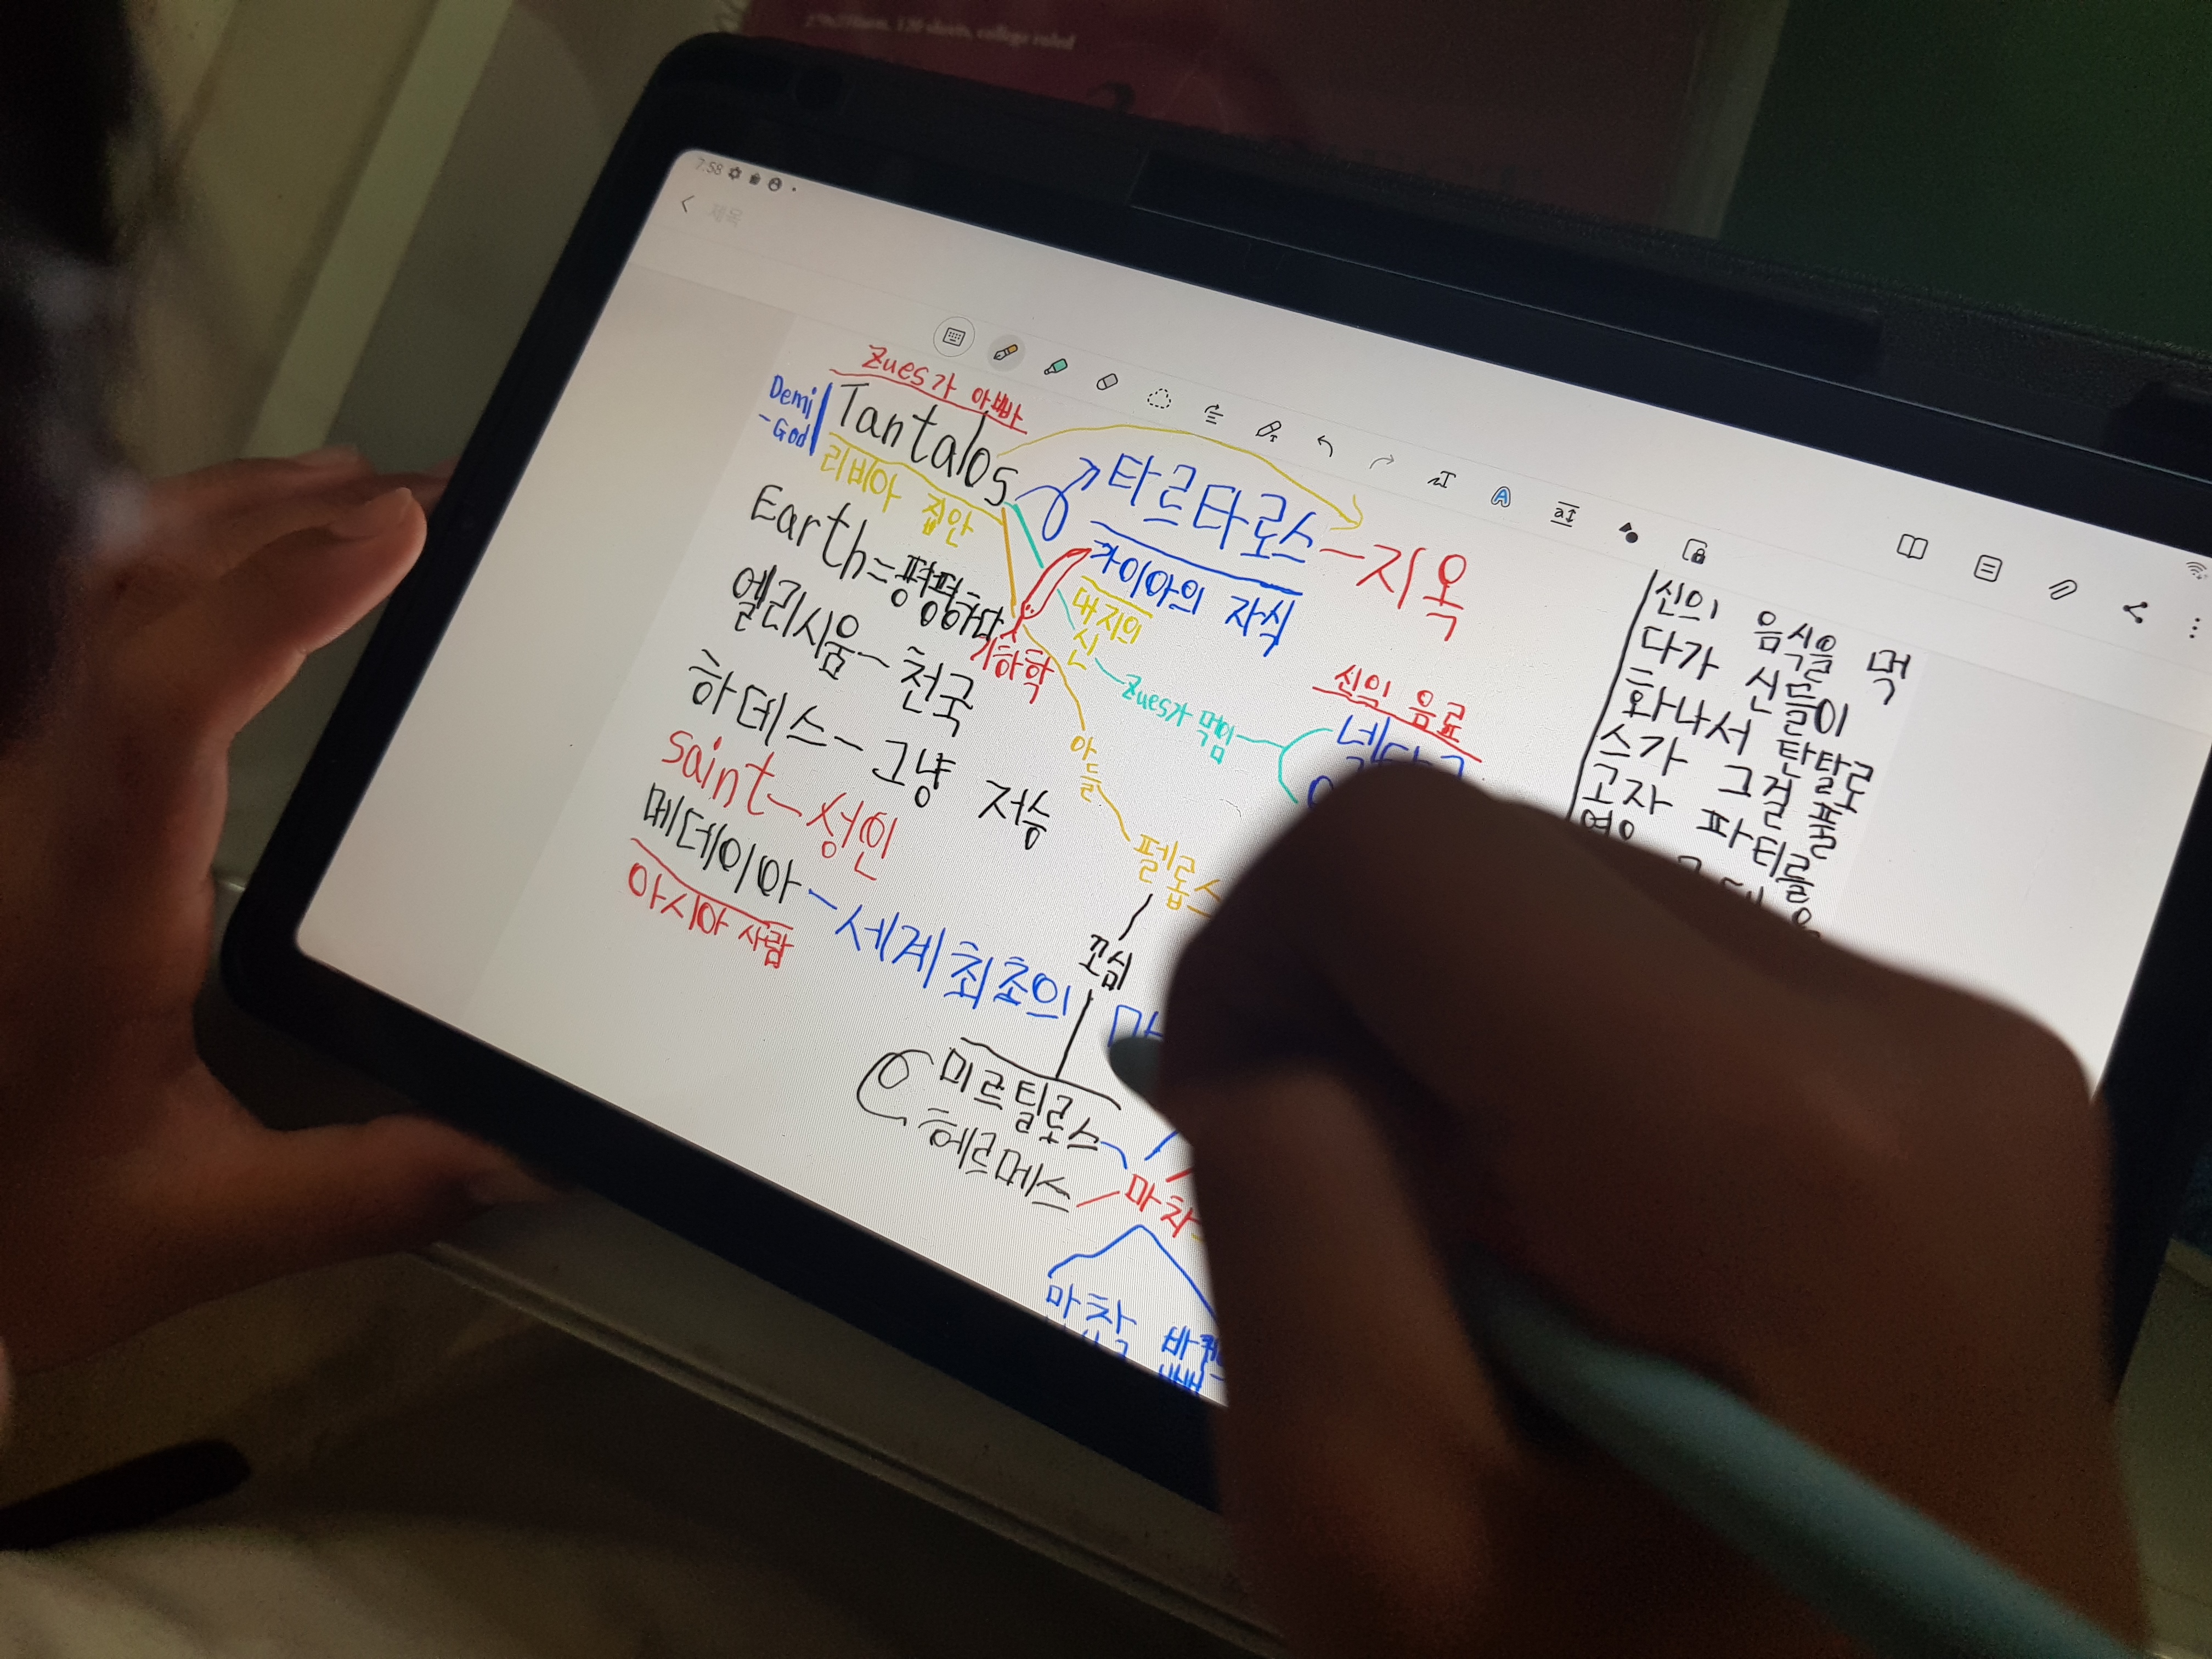 120 sheets, college ruled
7:58
제목
Zues가 아빠
Demi
-God
Tantalos
리비아 집안
타르타로스 - 지옥
가이아의 자식
대지의
신
Earth = 평평하다
기하학
엘리시움 - 천국
하데스 - 그냥 저승
saint - 성인
메데이아 - 세계 최초의 마
아시아 사람
Zues가 먹임
신의 음료
아들
펠롭스
꼬심
미르틸로스
헤르메스
마차
마차 바퀴
신의 음식을 먹
다가 신들이
화나서 탄탈로
스가 그걸 풀
고자 파티를